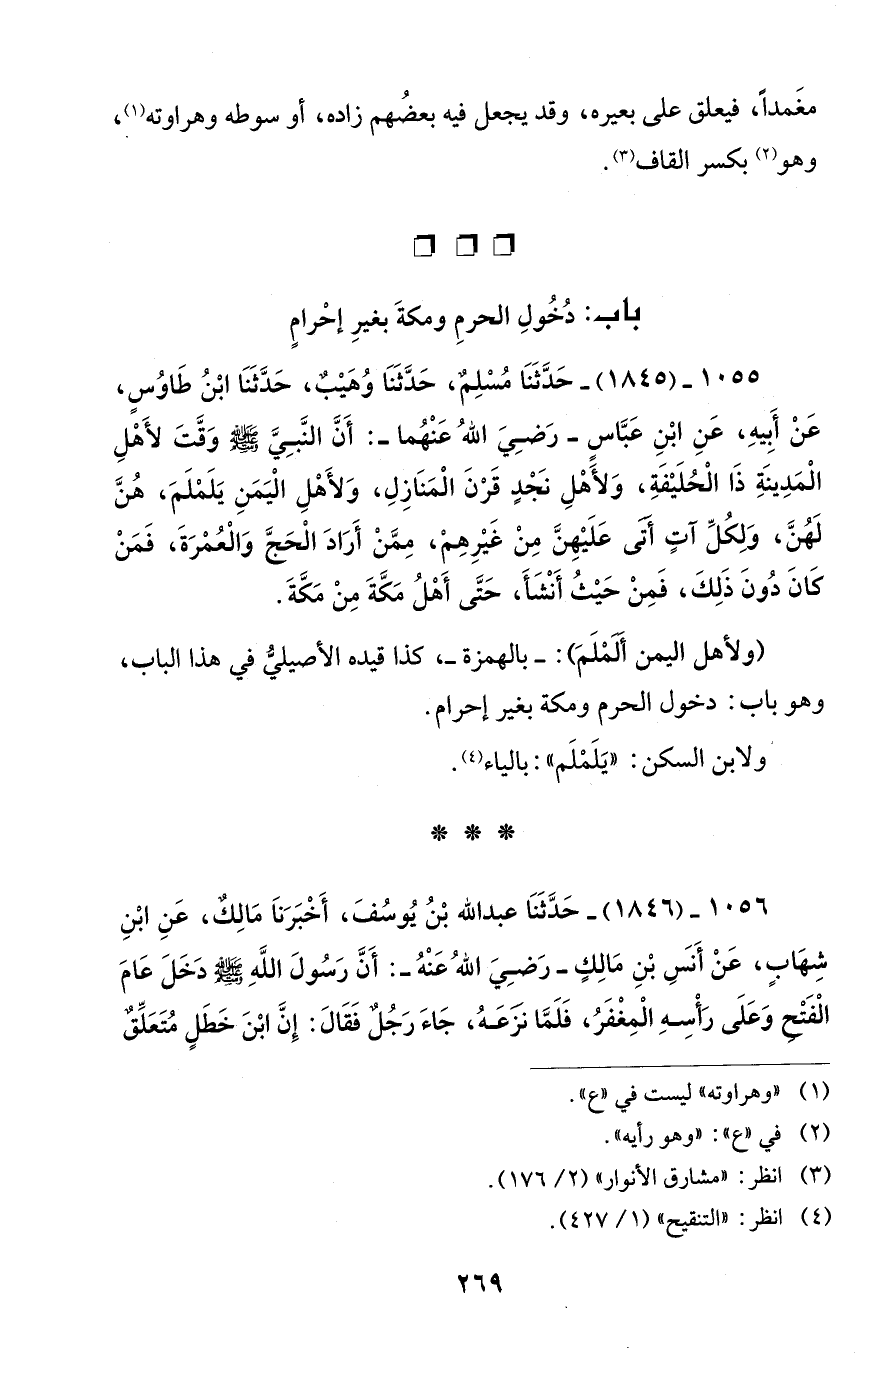 مغَمداً، فيعلق على بعيره، وقد يجعل فيه بعضُهم زاده، أو سوطه وهراوته(١)،
وهو(٢) بكسر القاف(٣).
باب: دُخُولِ الحرمِ ومكةَ بغيرِ إحْرامٍ
١٠٥٥ ـ (١٨٤٥) ـ حَدَّثَنَا مُسْلِمٌ، حَدَّثَنَا وُهَيْبٌ، حَدَّثَنَا ابْنُ طَاوُسٍ،
عَنْ أَبِيهِ، عَنِ ابْنِ عَبَّاسٍ ـ رَضيَ اللهُ عَنْهُما ـ: أَنَّ النَّبِيَّ ﷺ وَقَّتَ لأَهْلِ
الْمَدِينَةِ ذَا الْحُلَيْفَةِ، وَلأَهْلِ نَجْدٍ قَرْنَ الْمَنَازِلِ، وَلأَهْلِ الْيَمَنِ يَلَمْلَمَ، هُنَّ
لَهُنَّ، وَلِكُلِّ آتٍ أَتَى عَلَيْهِنَّ مِنْ غَيْرِهِمْ، مِمَّنْ أَرَادَ الْحَجَّ وَالْعُمْرَةَ، فَمَنْ
كَانَ دُونَ ذَلِكَ، فَمِنْ حَيْثُ أَنْشَأَ، حَتَّى أَهْلُ مَكَّةَ مِنْ مَكَّةَ.
(ولأهل اليمن أَلَمْلَمَ): ـ بالهمزة ـ، كذا قيده الأصيليُّ في هذا الباب،
وهو باب: دخول الحرم ومكة بغير إحرام.
ولابن السكن: «يَلَمْلَم»: بالياء(٤).
* * *
١٠٥٦ ـ (١٨٤٦) ـ حَدَّثَنَا عبدالله بْنُ يُوسُفَ، أَخْبَرَنَا مَالِكٌ، عَنِ ابْنِ
شِهَابٍ، عَنْ أَنَسِ بْنِ مَالِكٍ ـ رَضيَ اللهُ عَنْهُ ـ: أَنَّ رَسُولَ اللَّهِ ﷺ دَخَلَ عَامَ
الْفَتْحِ وَعَلَى رَأْسِهِ الْمِغْفَرُ، فَلَمَّا نَزَعَهُ، جَاءَ رَجُلٌ فَقَالَ: إِنَّ ابْنَ خَطَلٍ مُتَعَلِّقٌ
(١) «وهراوته» ليست في «ع».
(٢) في «ع»: «وهو رأيه».
(٣) انظر: «مشارق الأنوار» (٢/ ١٧٦).
(٤) انظر: «التنقيح» (١/ ٤٢٧).
٢٦٩